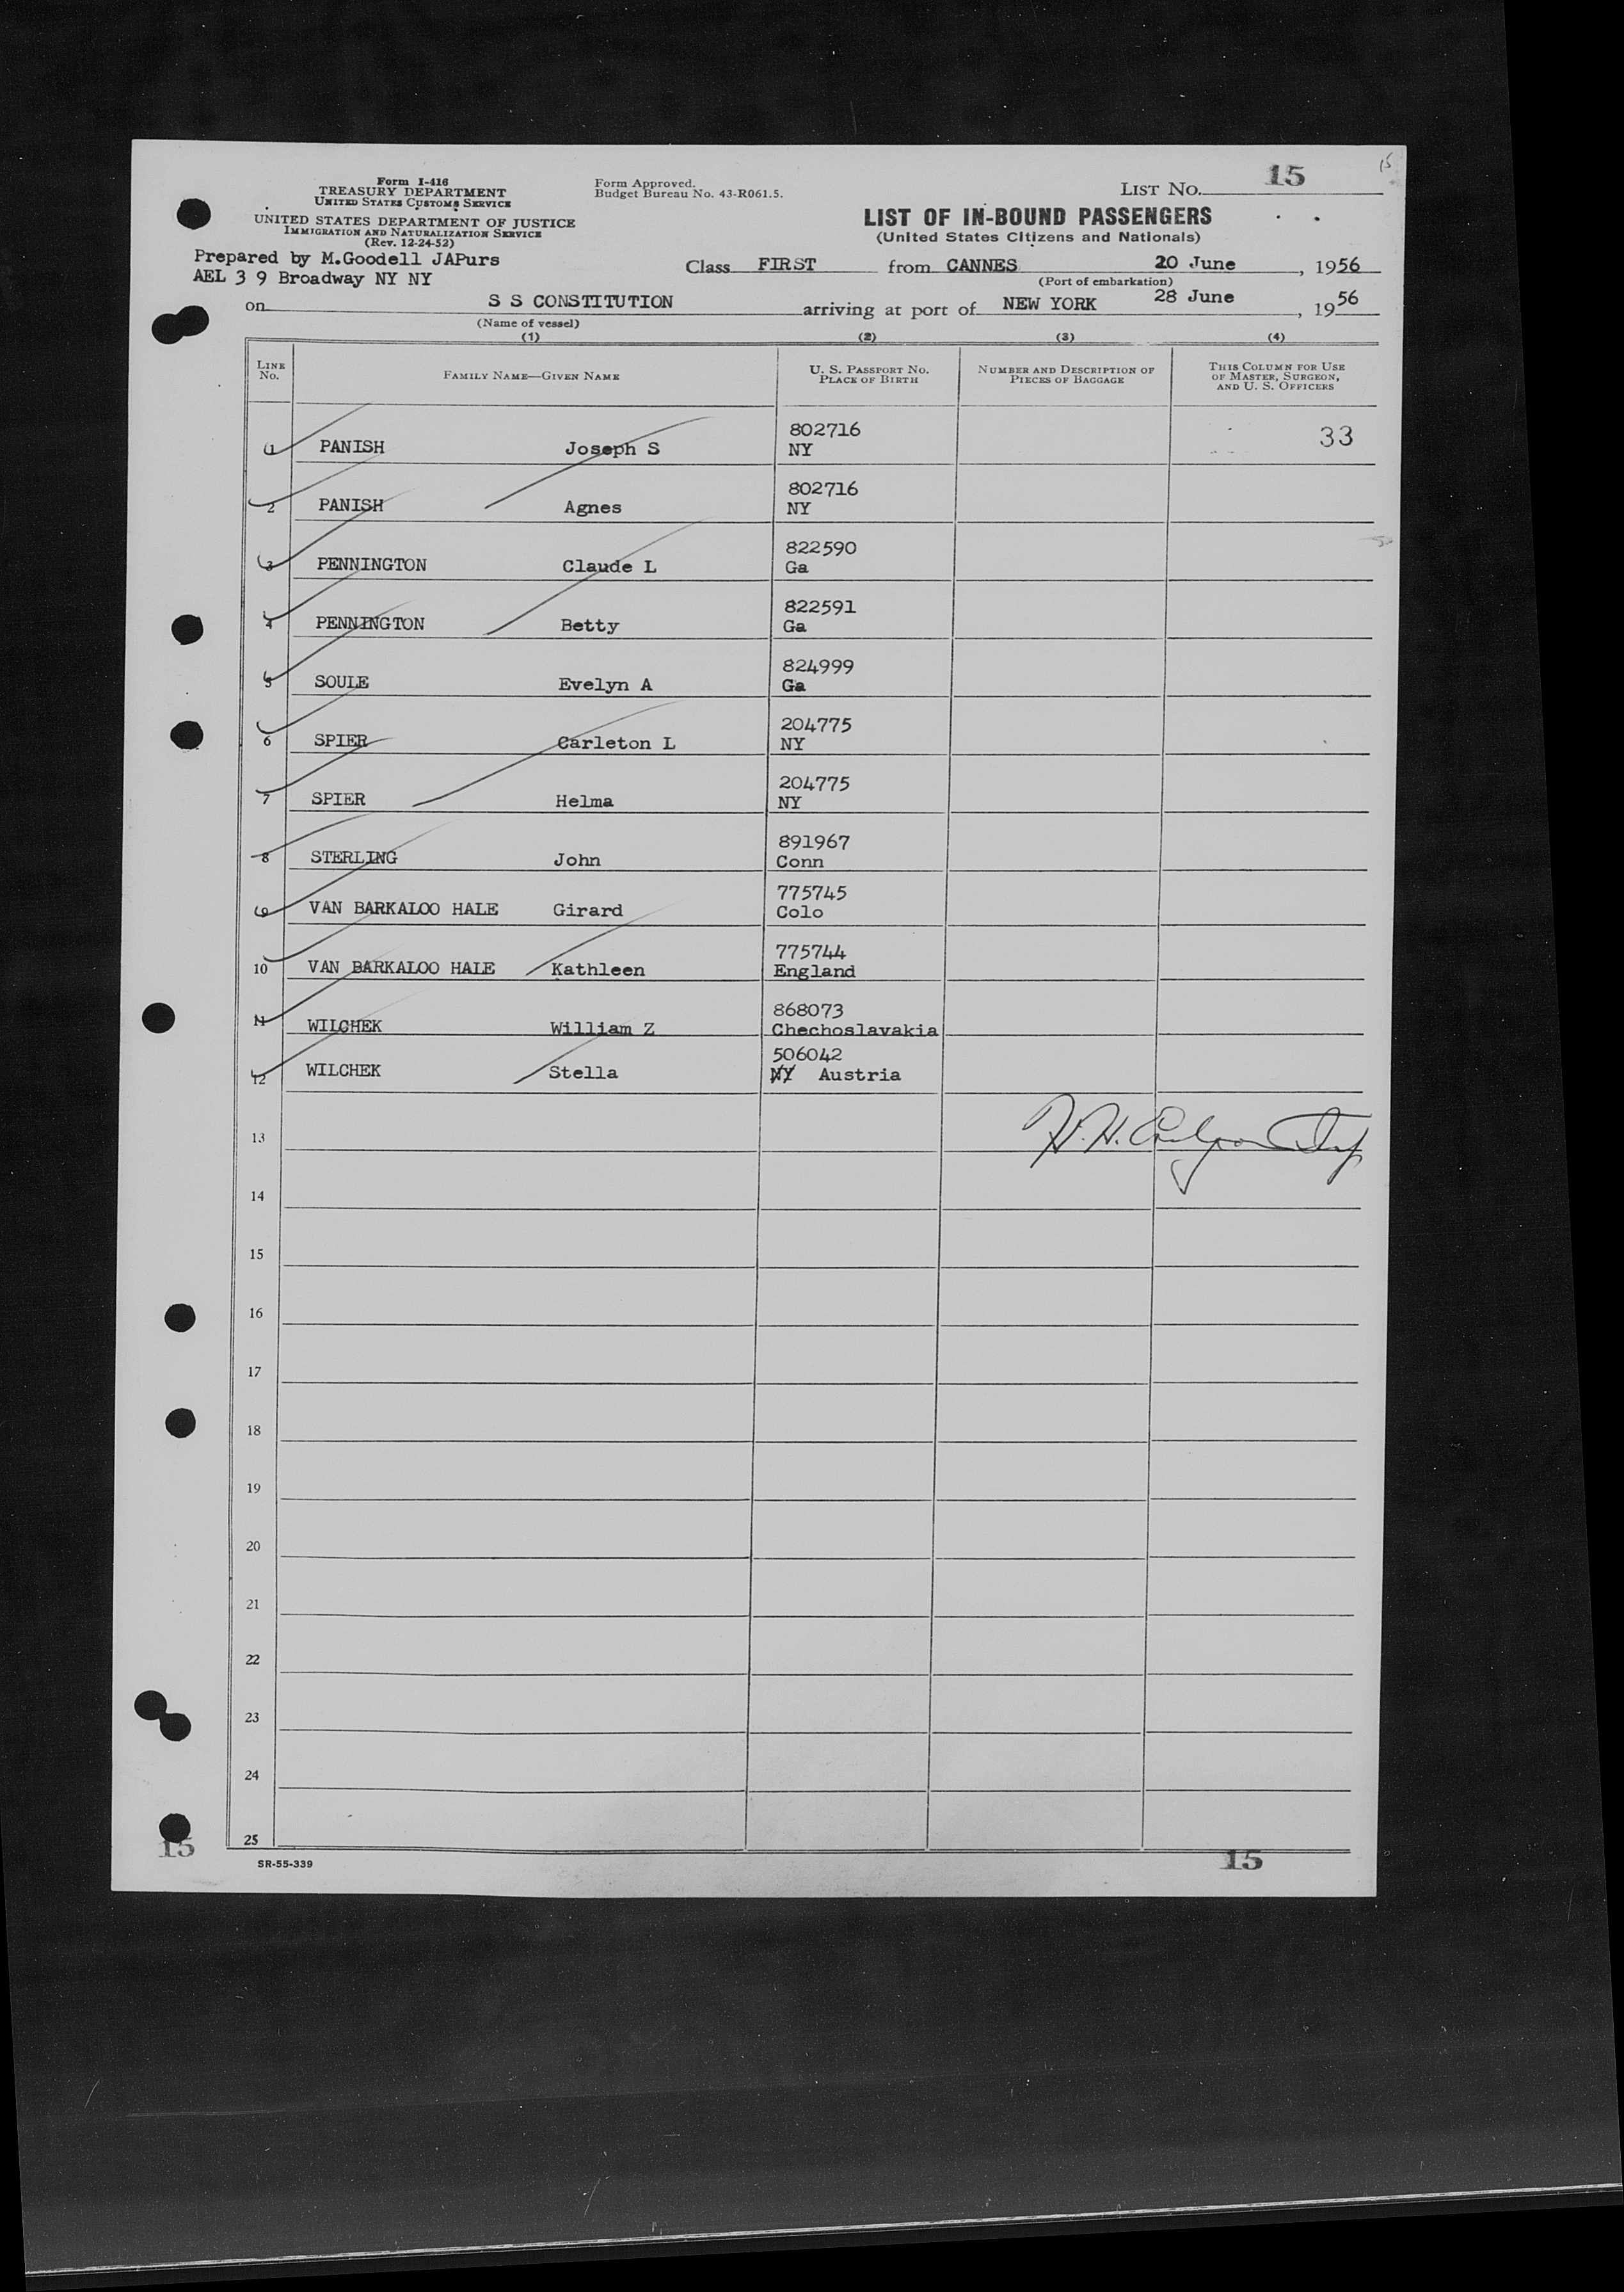 15
Form I-416
TREASURY DEPARTMENT
UNITED STATES CUSTOMS SERVICE
UNITED STATES DEPARTMENT OF JUSTICE
IMMIGRATION AND NATURALIZATION SERVICE
(Rev. 12-24-52)
Form Approved.
Budget Bureau No. 43-R061.5.
LIST NO. 15
LIST OF IN-BOUND PASSENGERS
(United States Citizens and Nationals)
Prepared by M.Goodell JAPurs
AEL 3 9 Broadway NY NY
Class FIRST from CANNES 20 June, 1956
(Port of embarkation)
on S S CONSTITUTION arriving at port of NEW YORK 28 June, 1956
(Name of vessel)
(1) (2) (3) (4)
LINE NO. FAMILY NAME—GIVEN NAME U. S. PASSPORT NO. PLACE OF BIRTH NUMBER AND DESCRIPTION OF PIECES OF BAGGAGE THIS COLUMN FOR USE OF MASTER, SURGEON, AND U. S. OFFICERS
802716 33
1 PANISH Joseph S NY
802716
2 PANISH Agnes NY
822590
3 PENNINGTON Claude L Ga
822591
4 PENNINGTON Betty Ga
824999
5 SOULE Evelyn A Ga
204775
6 SPIER Carleton L NY
204775
7 SPIER Helma NY
891967
8 STERLING John Conn
775745
9 VAN BARKALOO HALE Girard Colo
775744
10 VAN BARKALOO HALE Kathleen England
868073
11 WILCHEK William Z Chechoslavakia
506042
12 WILCHEK Stella NY Austria
13
14
15
16
17
18
19
20
21
22
23
24
25
15
SR-55-339
15